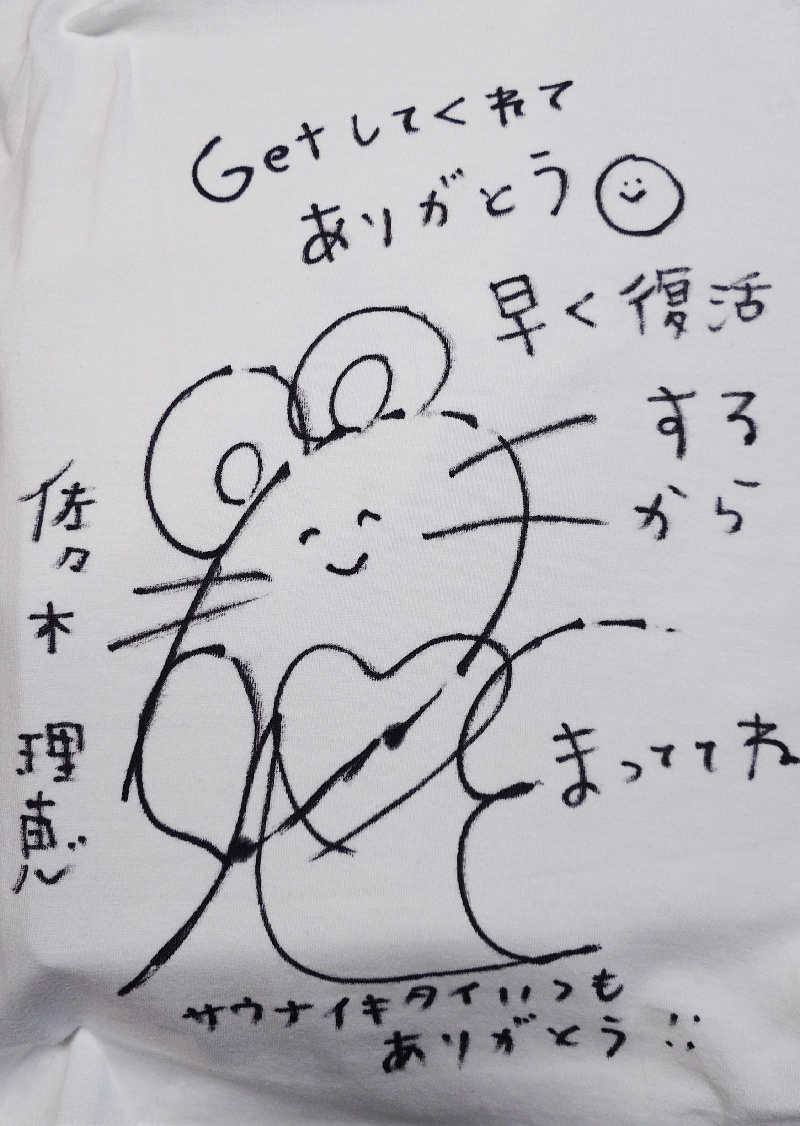 Getしてくれて
ありがとう
早く復活
する
から
まっててね
佐々木 理恵
サウナイキタイいつも
ありがとう!!